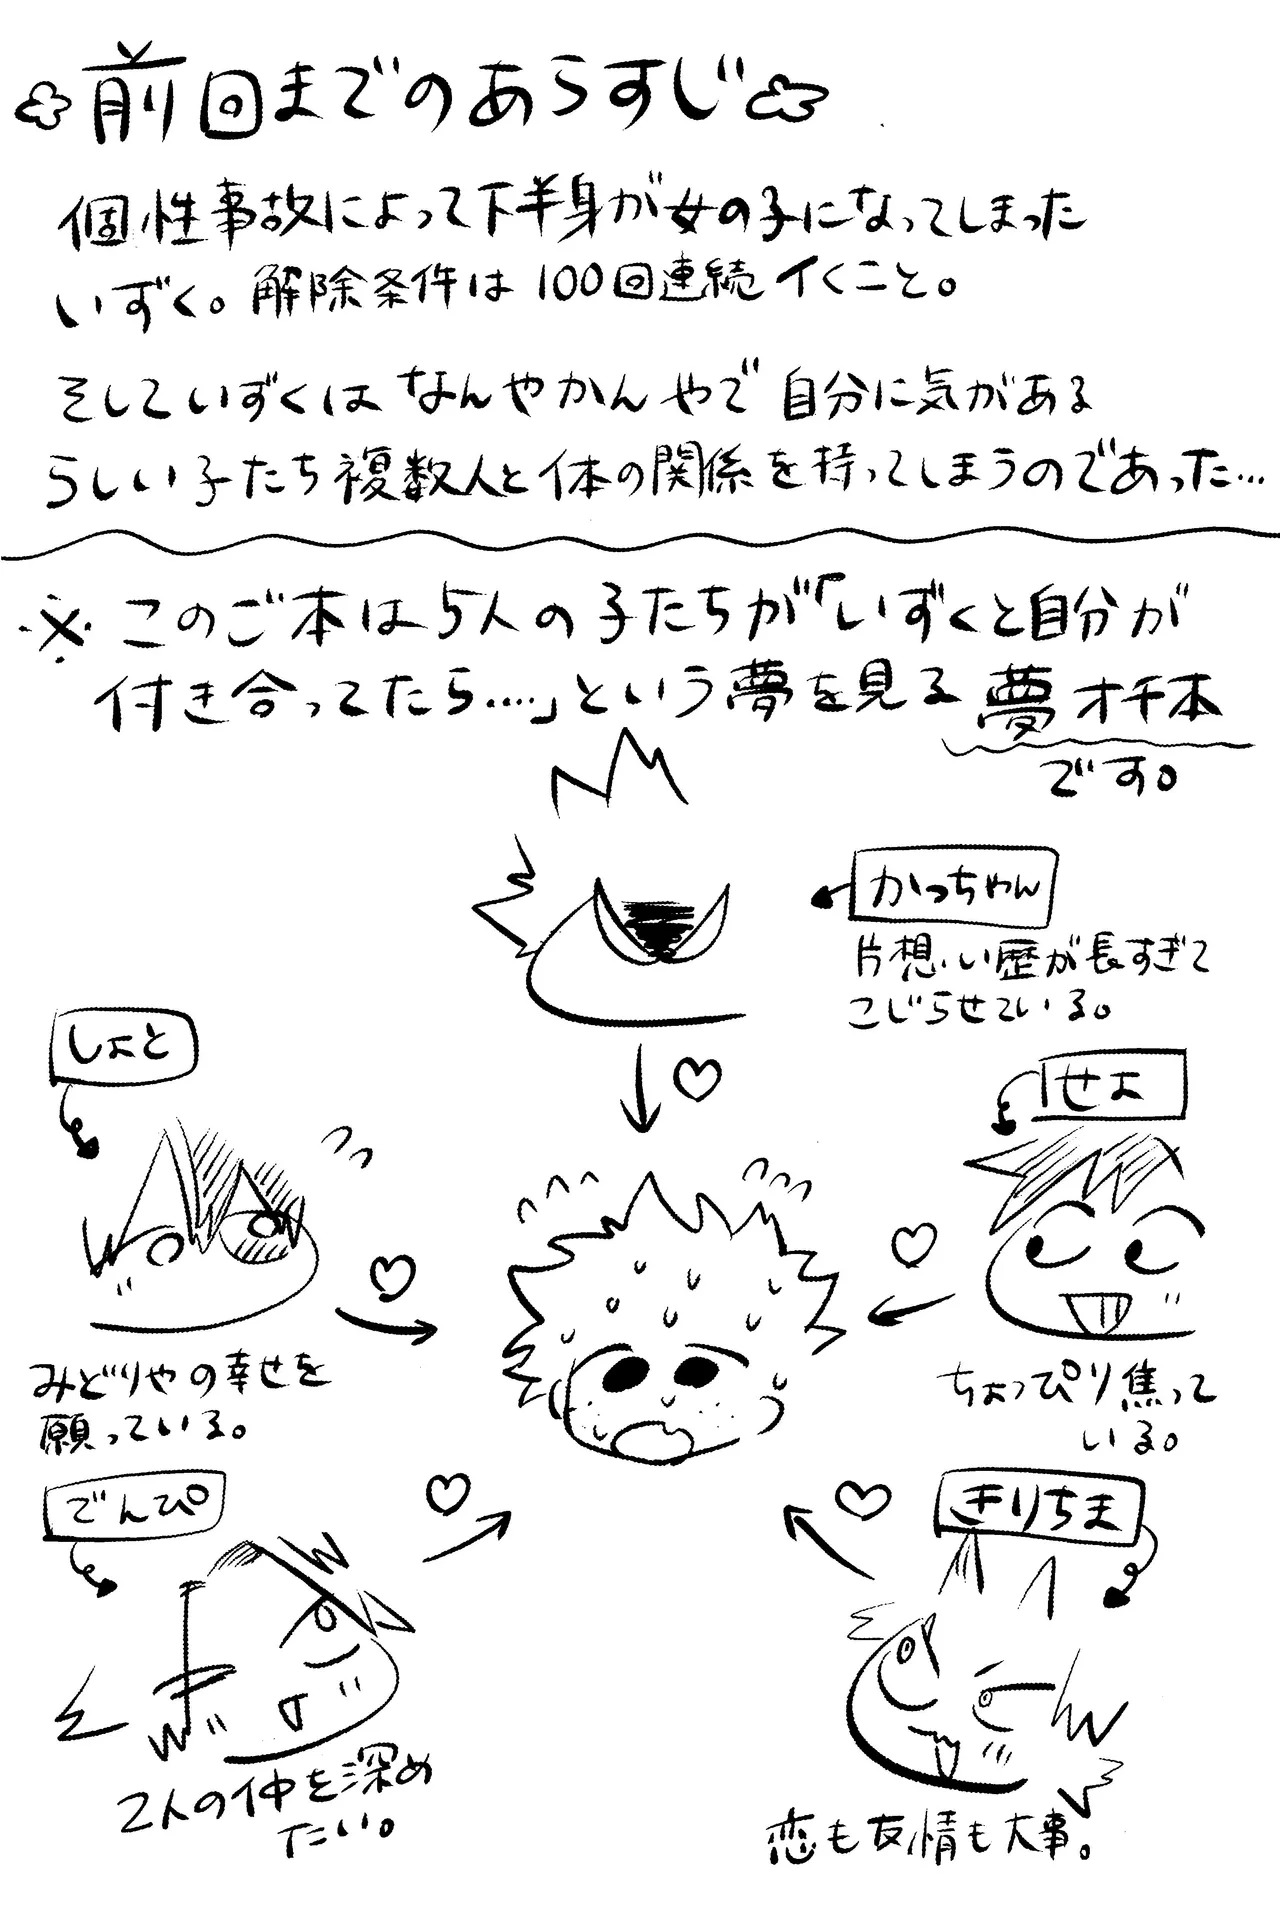 前回までのあらすじ
個性事故によって下半身が女の子になってしまった
いずく。解除条件は100回連続イくこと。
そしていずくはなんやかんやで自分に気がある
らしい子たち複数人と体の関係を持ってしまうのであった…
※このご本は5人の子たちが「いずくと自分が
付き合ってたら….」という夢を見る夢オチ本
です。
かっちゃん
片想い歴が長すぎて
こじらせている。
しょと
みどりやの幸せを
願っている。
せよ
ちょっぴり焦って
いる。
でんぴ
2人の仲を深め
たい。
きりちま
恋も友情も大事。